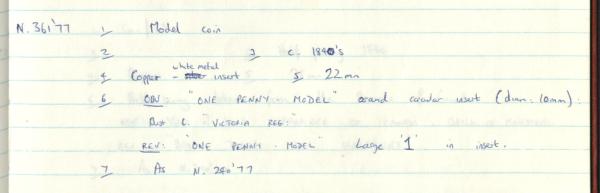 N. 361'77 1 Model coin
2 3 c. 1840's
4 Copper - white metal insert 5 22mm
6 OBV "ONE PENNY MODEL" around circular insert (diam: 10mm):
Bust L. VICTORIA REG:
REV: "ONE PENNY · MODEL" Large '1' in insert.
7 As N. 240'77